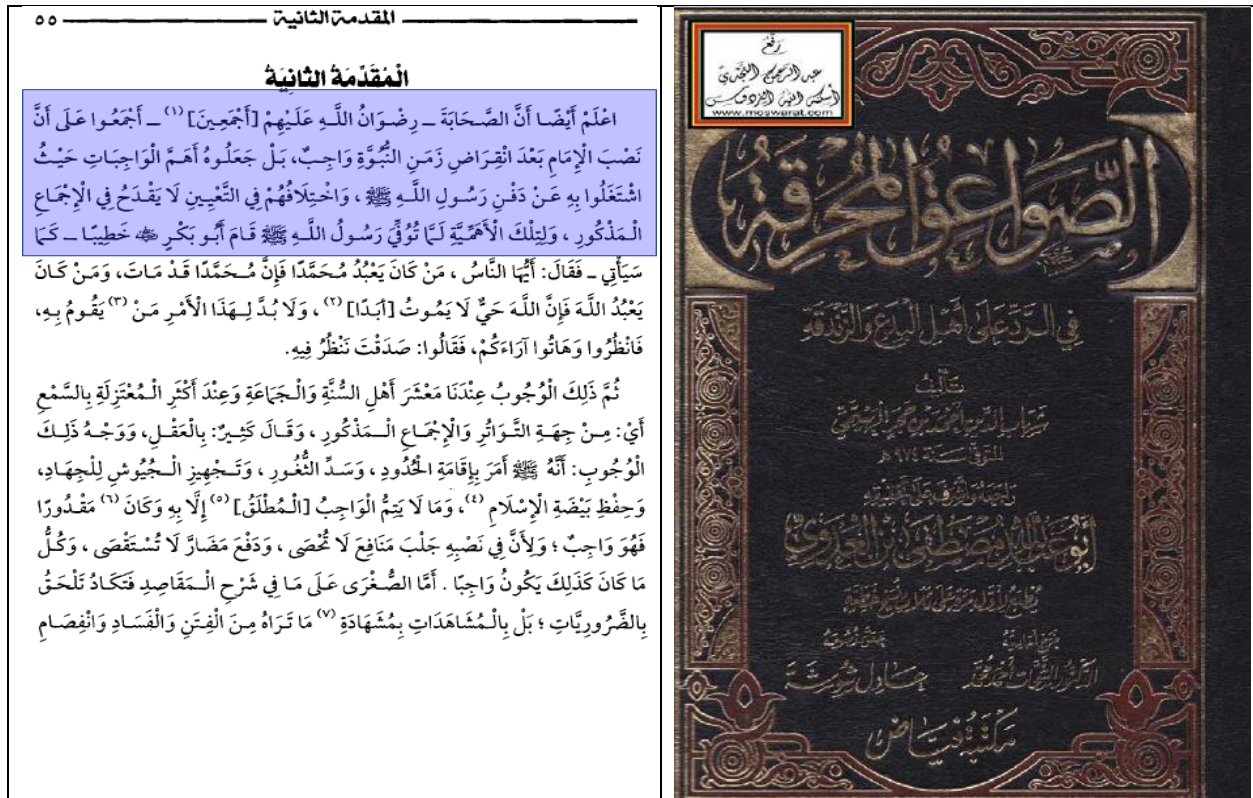 المقدمة الثانية ٥٥
الْمُقَدِّمَةُ الثَّانِيَةُ
اعْلَمْ أَيْضًا أَنَّ الصَّحَابَةَ ــ رِضْوَانُ اللَّهِ عَلَيْهِمْ [أَجْمَعِينَ] (١) ــ أَجْمَعُوا عَلَى أَنَّ
نَصْبَ الْإِمَامِ بَعْدَ انْقِرَاضِ زَمَنِ النُّبُوَّةِ وَاجِبٌ، بَلْ جَعَلُوهُ أَهَمَّ الْوَاجِبَاتِ حَيْثُ
اشْتَغَلُوا بِهِ عَنْ دَفْنِ رَسُولِ اللَّهِ ﷺ ، وَاخْتِلَافُهُمْ فِي التَّعْيِينِ لَا يَقْدَحُ فِي الْإِجْمَاعِ
الْمَذْكُورِ ، وَلِتِلْكَ الْأَهَمِّيَّةِ لَمَّا تُوُفِّيَ رَسُولُ اللَّهِ ﷺ قَامَ أَبُو بَكْرٍ ﵁ خَطِيبًا ــ كَمَا
سَيَأْتِي ــ فَقَالَ: أَيُّهَا النَّاسُ ، مَنْ كَانَ يَعْبُدُ مُحَمَّدًا فَإِنَّ مُحَمَّدًا قَدْ مَاتَ، وَمَنْ كَانَ
يَعْبُدُ اللَّهَ فَإِنَّ اللَّهَ حَيٌّ لَا يَمُوتُ [أَبَدًا] (٢) ، وَلَا بُدَّ لِهَذَا الْأَمْرِ مَنْ (٣) يَقُومُ بِهِ،
فَانْظُرُوا وَهَاتُوا آرَاءَكُمْ، فَقَالُوا: صَدَقْتَ نَنْظُرُ فِيهِ.
ثُمَّ ذَلِكَ الْوُجُوبُ عِنْدَنَا مَعْشَرَ أَهْلِ السُّنَّةِ وَالْجَمَاعَةِ وَعِنْدَ أَكْثَرِ الْمُعْتَزِلَةِ بِالسَّمْعِ
أَيْ: مِنْ جِهَةِ التَّوَاتُرِ وَالْإِجْمَاعِ الْمَذْكُورِ ، وَقَالَ كَثِيرٌ: بِالْعَقْلِ، وَوَجْهُ ذَلِكَ
الْوُجُوبِ: أَنَّهُ ﷺ أَمَرَ بِإِقَامَةِ الْحُدُودِ ، وَسَدِّ الثُّغُورِ ، وَتَجْهِيزِ الْجُيُوشِ لِلْجِهَادِ،
وَحِفْظِ بَيْضَةِ الْإِسْلَامِ (٤)، وَمَا لَا يَتِمُّ الْوَاجِبُ [الْمُطْلَقُ] (٥) إِلَّا بِهِ وَكَانَ (٦) مَقْدُورًا
فَهُوَ وَاجِبٌ ؛ وَلِأَنَّ فِي نَصْبِهِ جَلْبَ مَنَافِعَ لَا تُحْصَى ، وَدَفْعَ مَضَارَّ لَا تُسْتَقْصَى ، وَكُلُّ
مَا كَانَ كَذَلِكَ يَكُونُ وَاجِبًا . أَمَّا الصُّغْرَى عَلَى مَا فِي شَرْحِ الْمَقَاصِدِ فَتَكَادُ تَلْحَقُ
بِالضَّرُورِيَّاتِ ؛ بَلْ بِالْمُشَاهَدَاتِ بِمُشَهَادَةِ (٧) مَا تَرَاهُ مِنَ الْفِتَنِ وَالْفَسَادِ وَانْفِصَامِ
رَفْعُ
عبد الرحمن النجدي
أسكنه الله الفردوس
www.moswarat.com
الصَّوَاعِقُ الْمُحْرِقَةُ
فِي الرَّدِّ عَلَى أَهْلِ الْبِدَعِ وَالزَّنْدَقَةِ
تأليف
شهاب الدين أحمد بن حجر الهيتمي
المتوفى سنة ٩٧٤هـ
أبو عبد الله مصطفى بن العدوي
عادل شوشة
مكتبة فياض